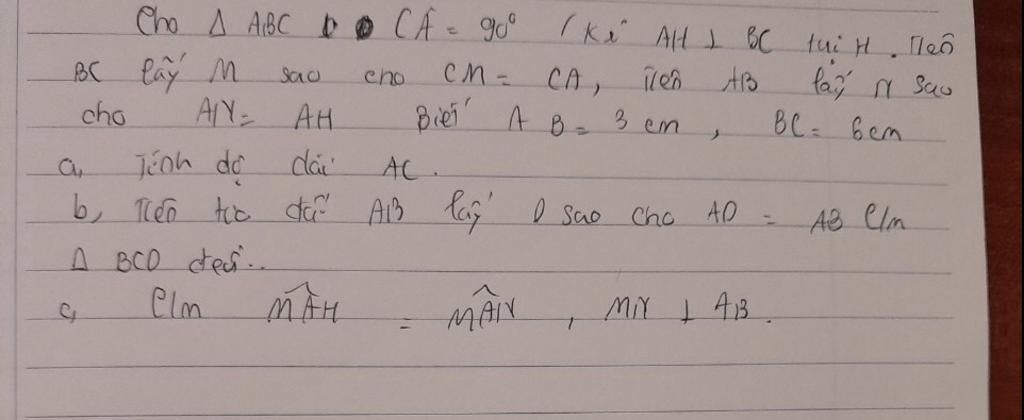 Cho Δ ABC (Â = 90° / Kẻ AH ⊥ BC tại H. Trên
BC lấy M sao cho CM = CA, trên AB lấy N sao
cho AN = AH Biết AB = 3 cm, BC = 6cm
a, Tính độ dài AC.
b, Trên tia đối AB lấy D sao cho AD = AB C/m
Δ BCD đều..
c, C/m MÂH = MÂN, MN ⊥ AB.